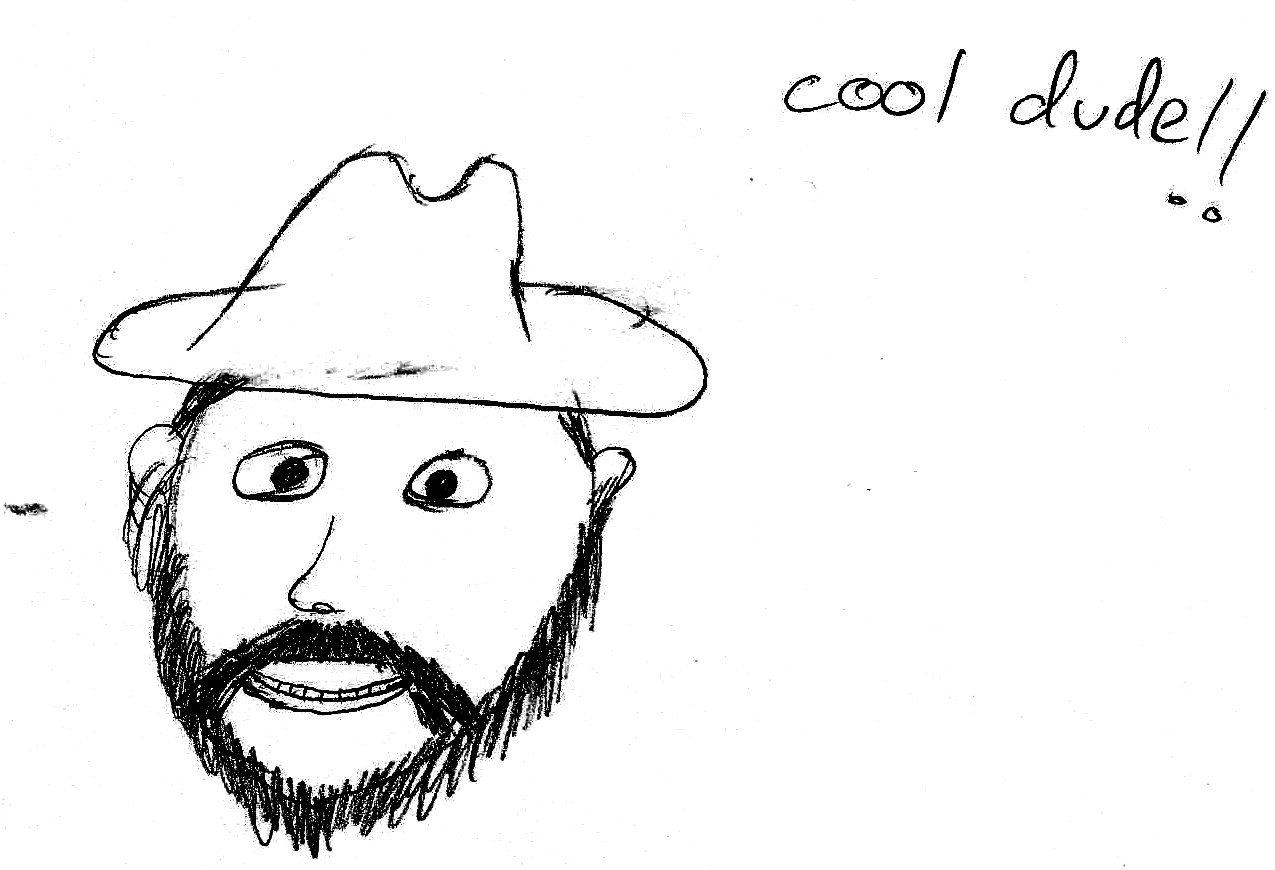 cool dude!!